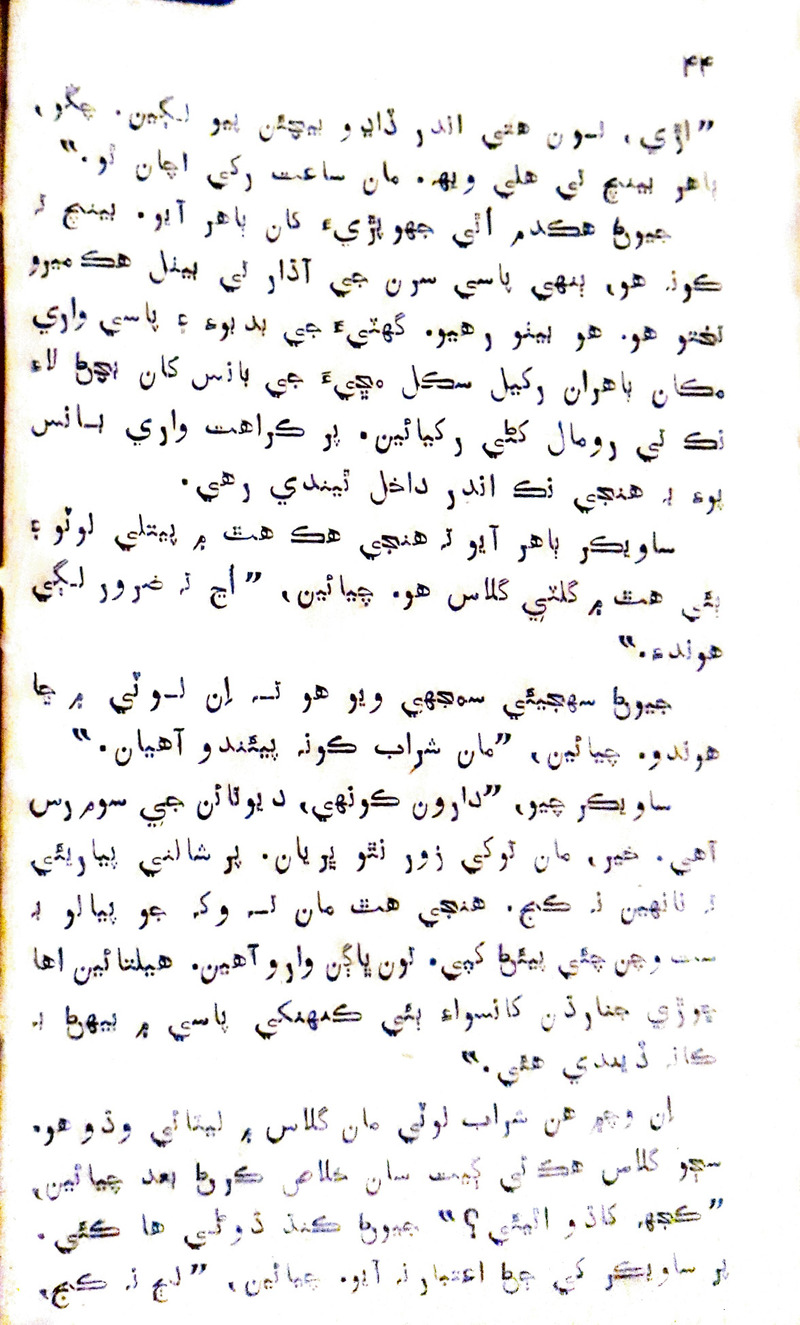 ۴۴
”اڙي، تون هتي اندر ڏاڍو بيچئن پيو لڳين. چڱو،
ٻاهر بينچ تي هلي ويهه. مان ساعت رکي اچان ٿو.“
جيوڻ هڪدم اُٿي جهوپڙيءَ کان ٻاهر آيو. بينچ ته
ڪونه هو، ٻنهي پاسي سرن جي آڌار تي بيٺل هڪ ميرو
تختو هو. هو بيٺو رهيو. گهٽيءَ جي بدبوءِ ۽ پاسي واري
مڪان ٻاهران رکيل سڪل مڇيءَ جي بانس کان بچڻ لاءِ
نڪ تي رومال کڻي رکيائين. پر ڪراهت واري بانس
بوءِ به هنجي نڪ اندر داخل ٿيندي رهي.
ساويڪر ٻاهر آيو ته هنجي هڪ هٿ ۾ پيتلي لوٽو ۽
ٻئي هٿ ۾ گلٽي گلاس هو. چيائين، ”اُڃ ته ضرور لڳي
هوندءِ.“
جيوڻ سهجيئي سمجهي ويو هو ته اِن لوٽي ۾ ڇا
هوندو. چيائين، ”مان شراب ڪونه پيئندو آهيان.“
ساويڪر چيو، ”دارون ڪونهي، ديوتائن جي سوم رس
آهي. خير، مان توکي زور نٿو ڀريان. پر شالني پياريئي
ته نانهين نه ڪج. هنجي هٿ مان ته وکه جو پيالو به
ست وچن چئي پيئڻ کپي. تون ڀاڳن وارو آهين. هيلتائين اها
ڇوڙي جنارڌن کانسواءِ ٻئي ڪنهنکي پاسي ۾ بيهڻ به
ڪانه ڏيندي هئي.“
اِن وچ۾ هن شراب لوٽي مان گلاس ۾ ليٽائي وڌو هو.
سڄو گلاس هڪ ئي ڳيت سان خلاص ڪرڻ بعد چيائين،
”ڪجهه کاڌو اٿيئي؟“ جيوڻ ڪنڌ ڌوڻي ها ڪئي.
پر ساويڪر کي ڄڻ اعتبار نه آيو. چيائين، ”لڄ نه ڪج،